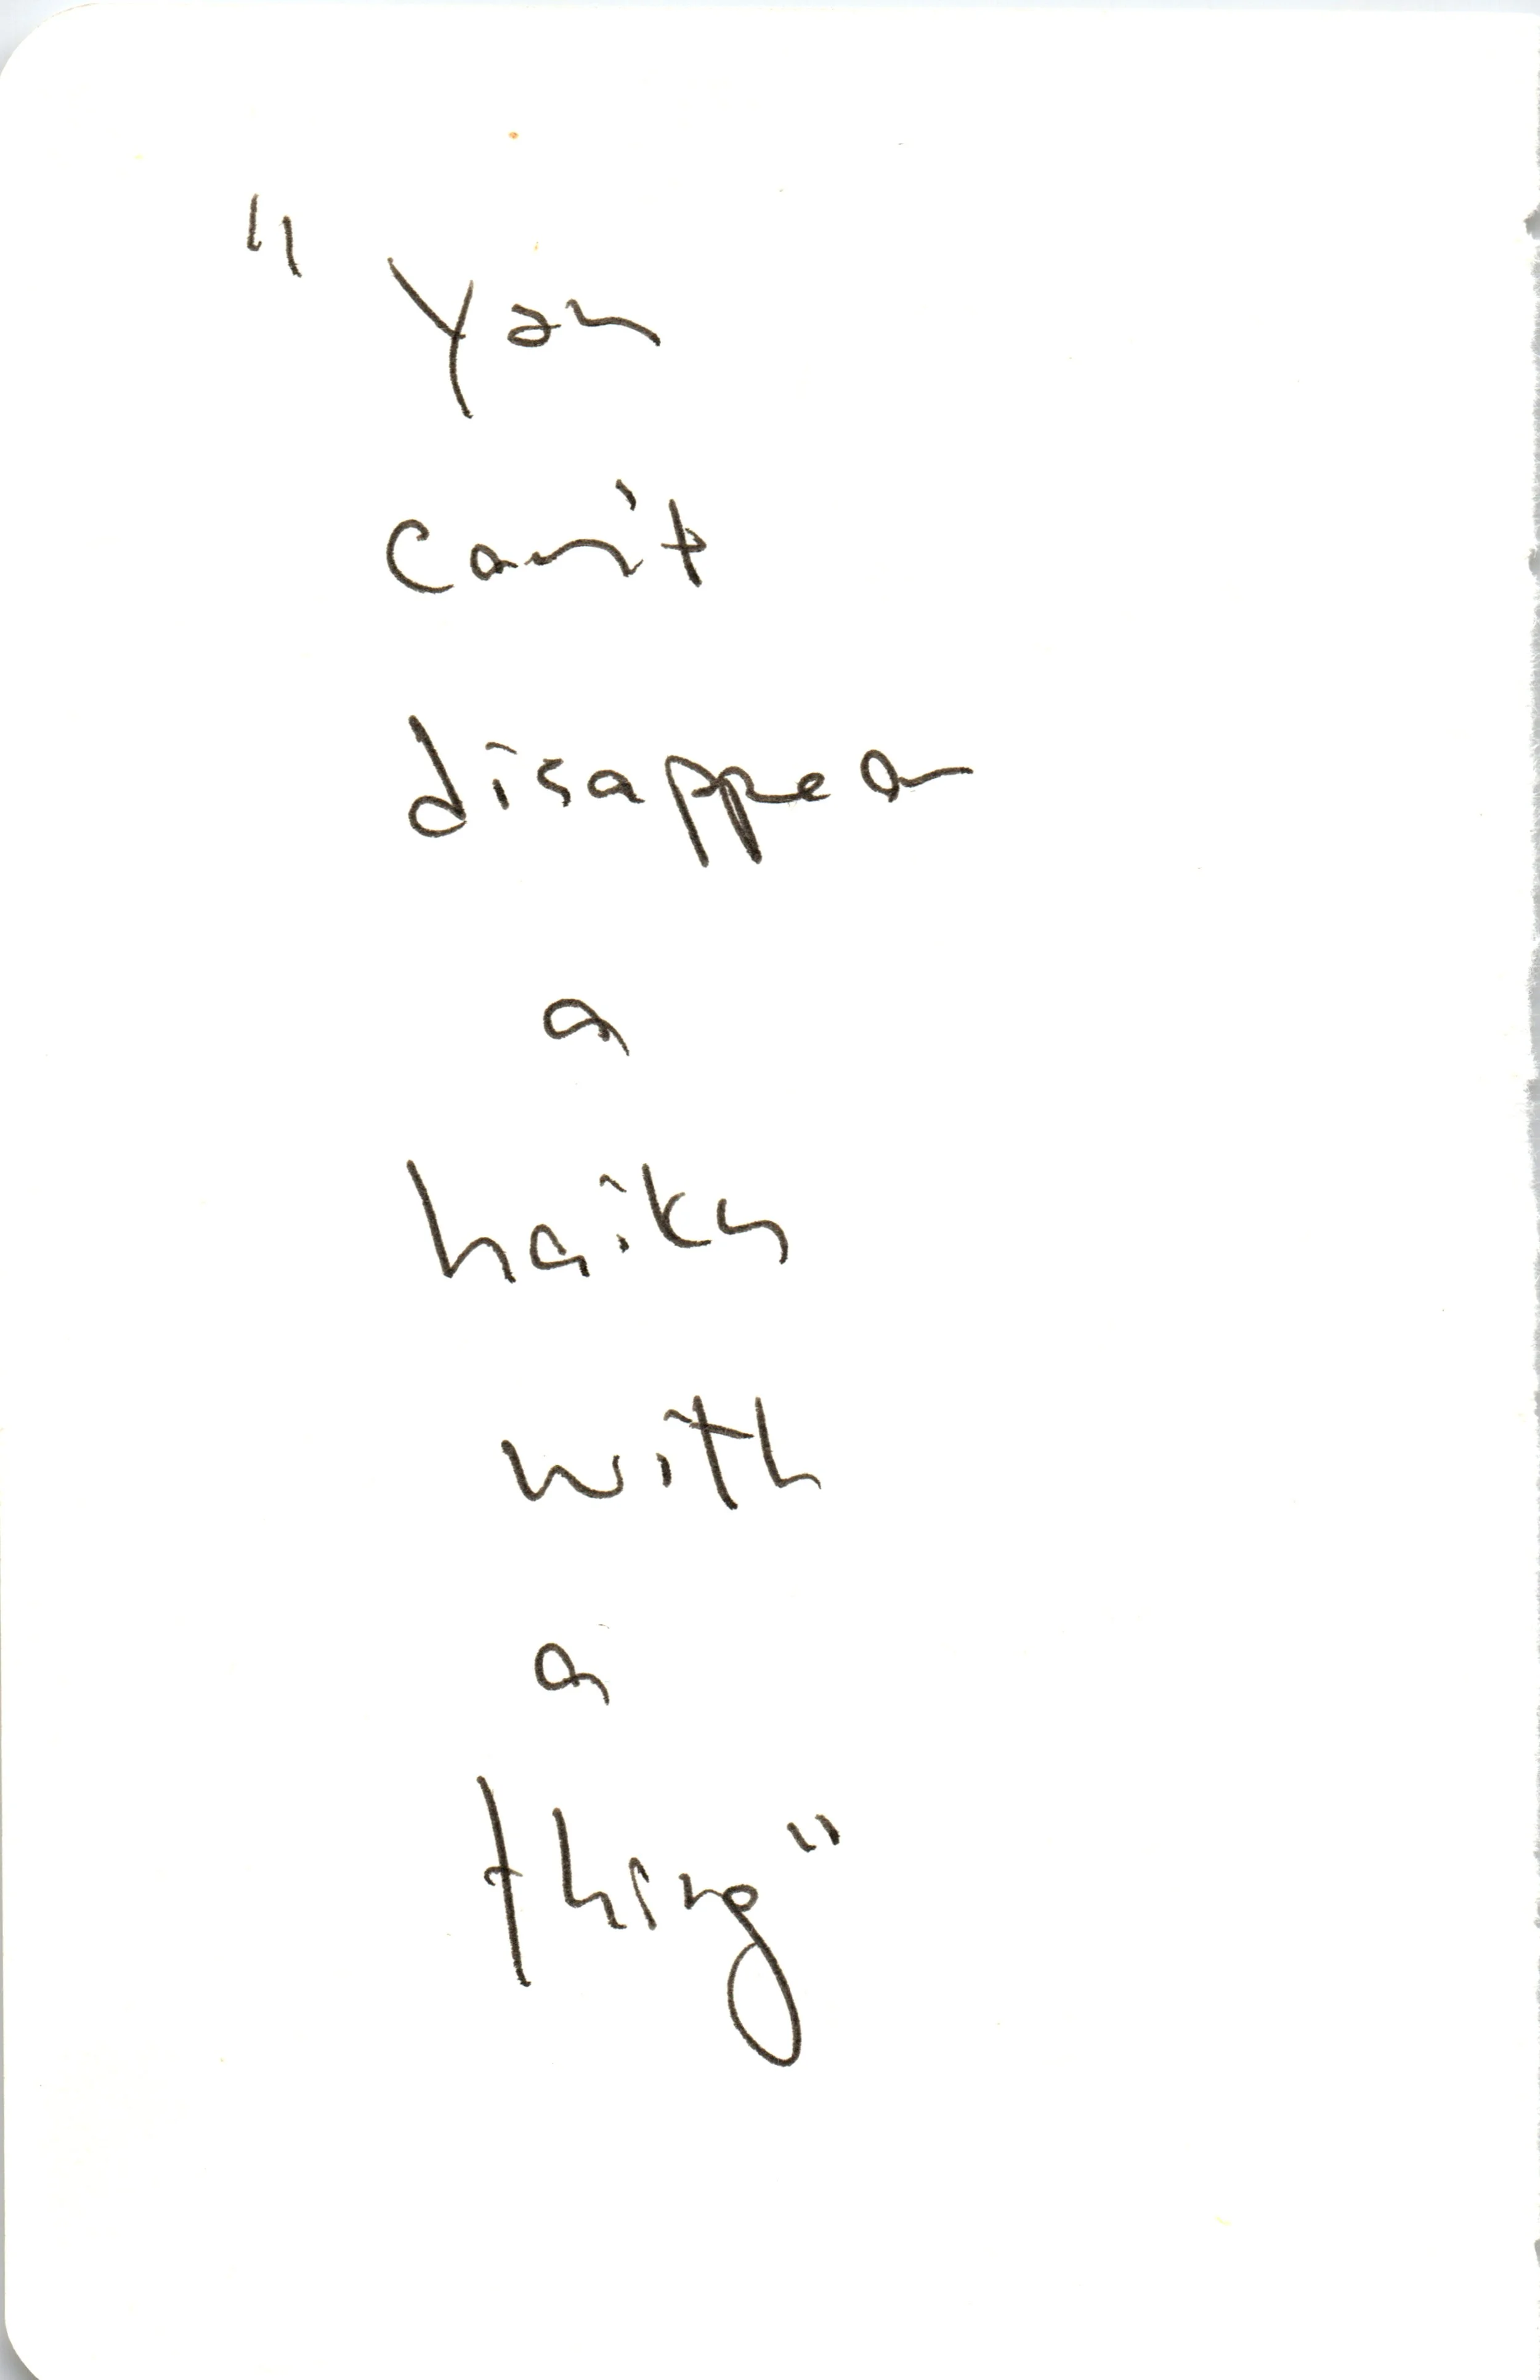 "You
can't
disappear
a
haiku
with
a
thing"